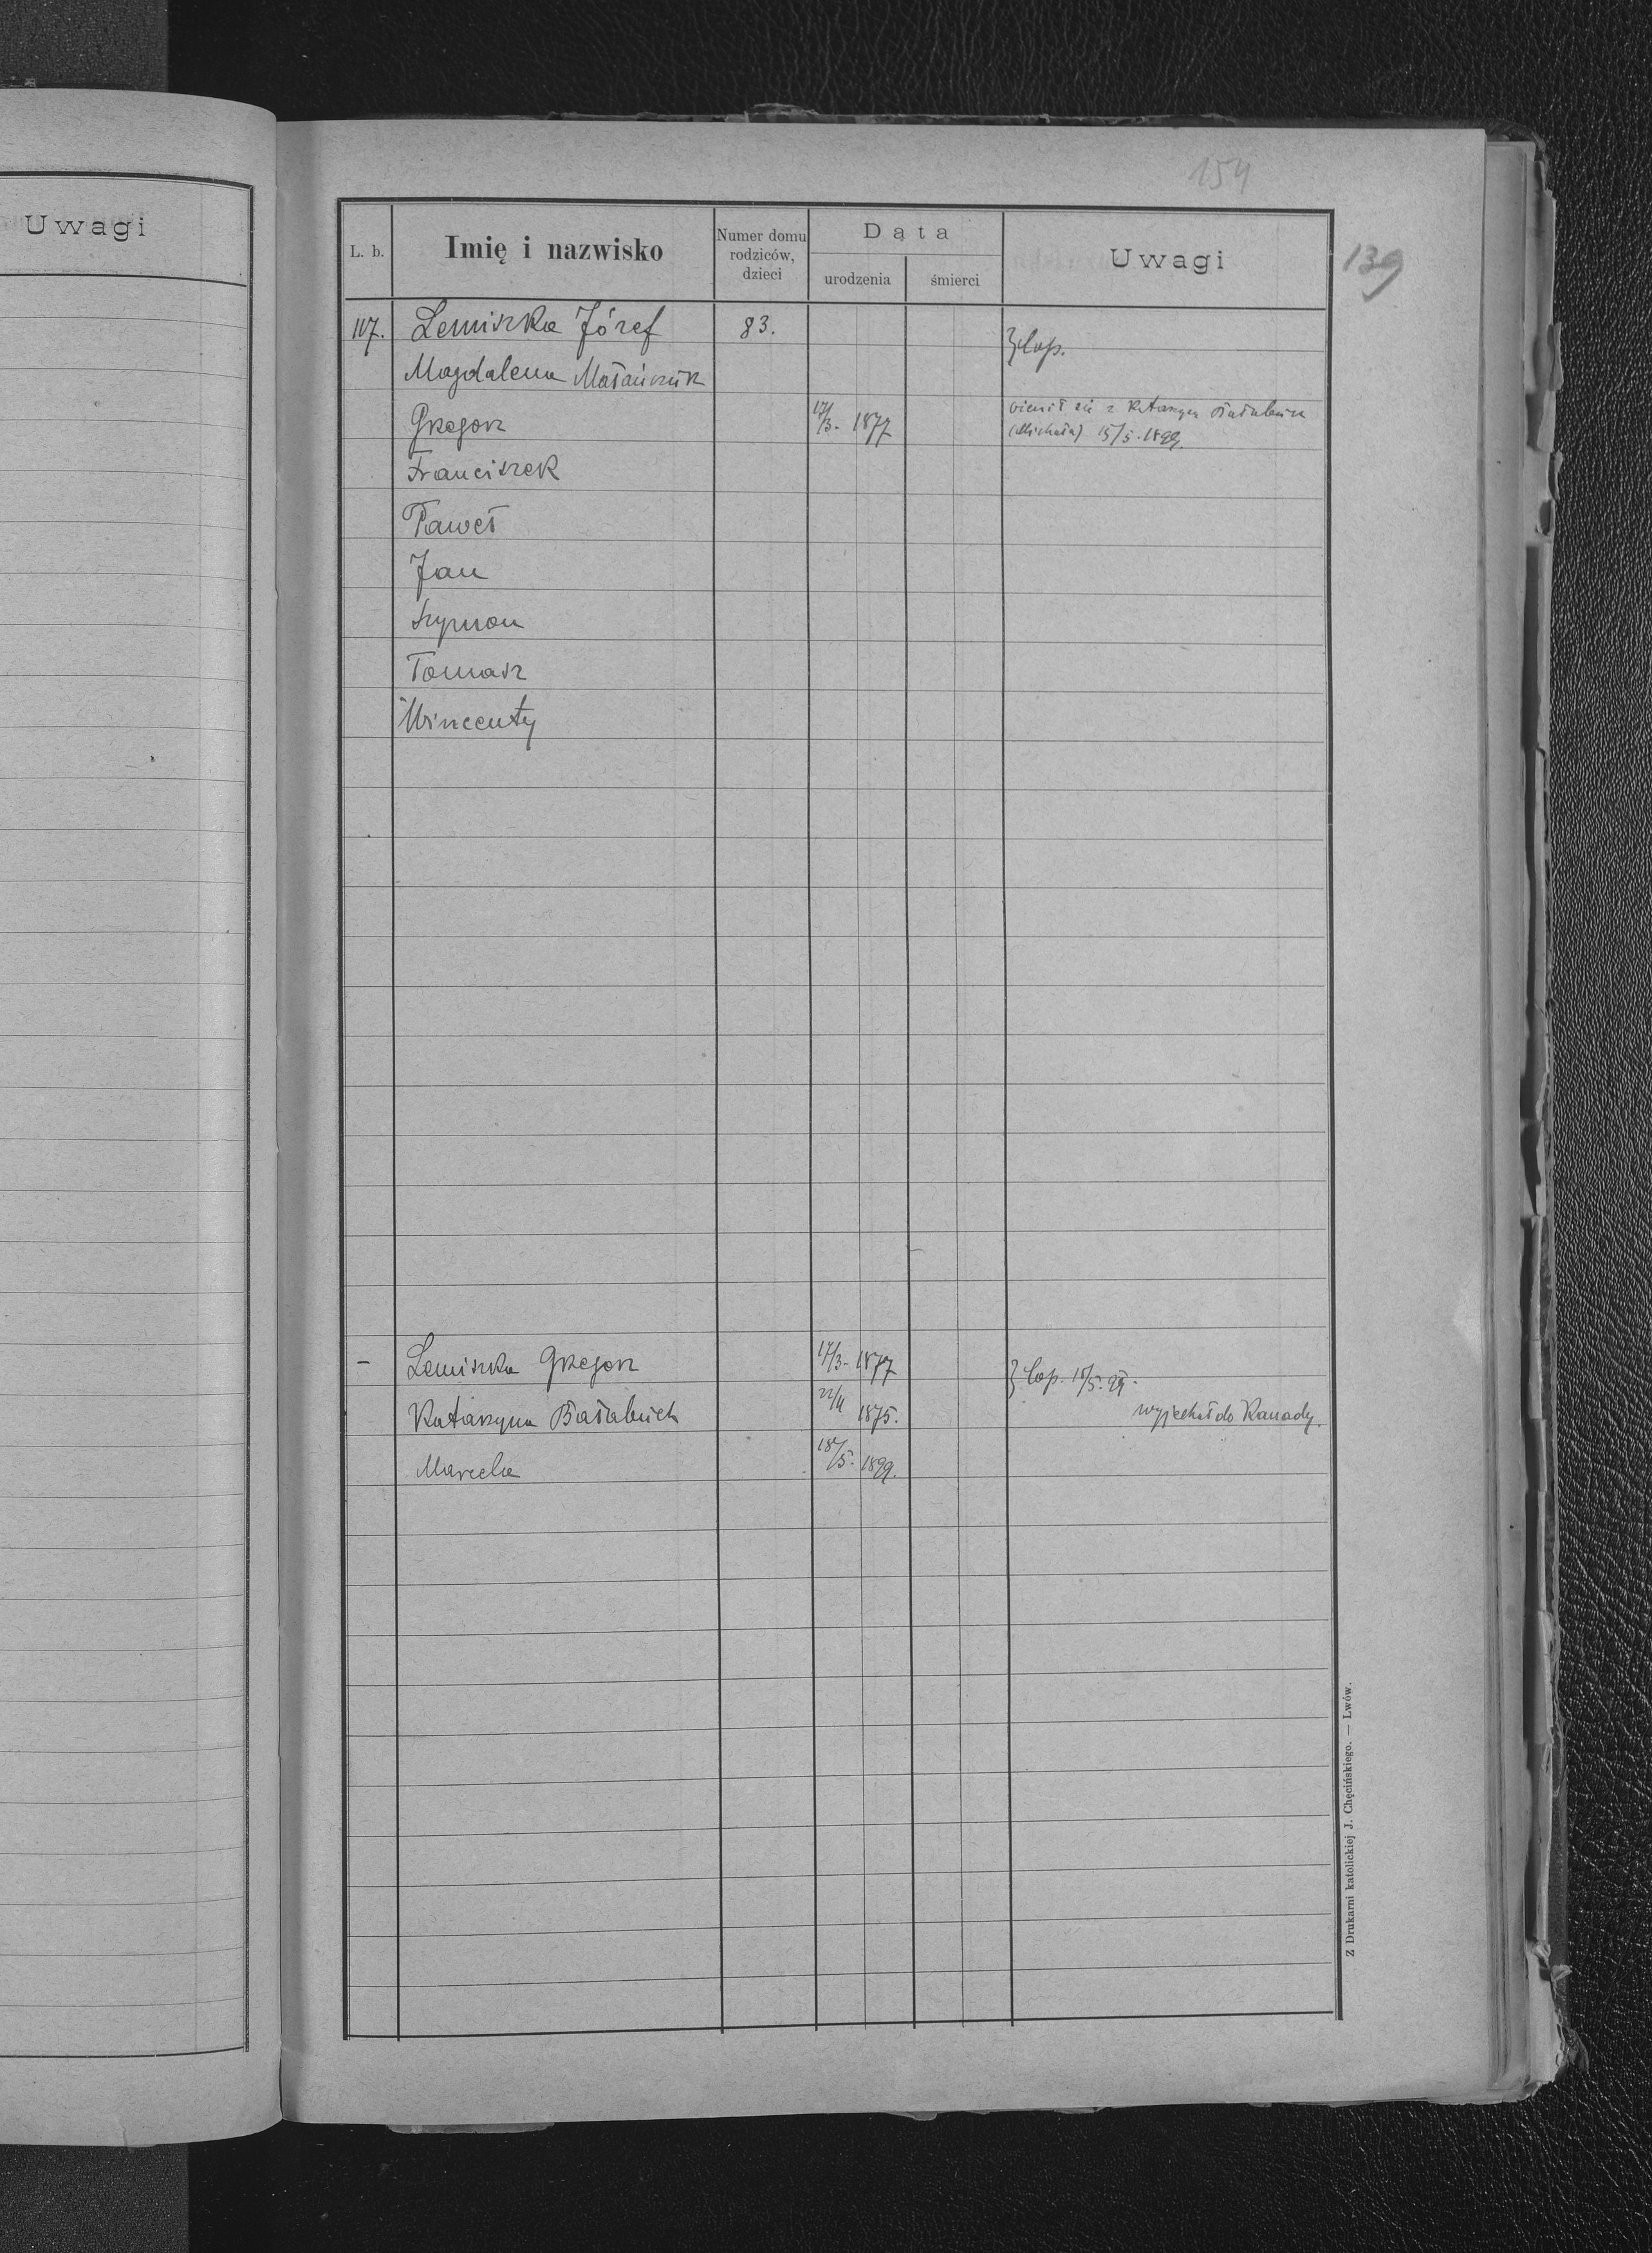 Uwagi
154
139
L. b. Imię i nazwisko Numer domu rodziców, dzieci Dąta urodzenia śmierci Uwagi
117. Lemiszka Józef 83. } cop.
Magdalena Matańczuk
Grzegorz 17/3. 1877 ożenił się z Katarzyną Bałabuch
(Michała) 15/5. 1899.
Franciszek
Paweł
Jan
Szymon
Tomasz
Wincenty
– Lemiszka Grzegorz 17/3. 1877 } cop. 15/5. 99.
Katarzyna Bałabuch 22/11 1875. wyjechał do Kanady.
Marcela 18/5. 1899.
Z Drukarni katolickiej J. Chęcińskiego. — Lwów.